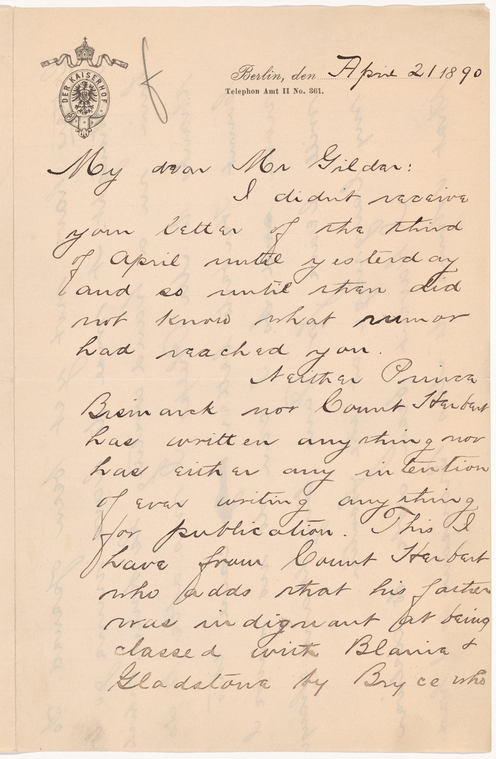 DER KAISERHOF
Berlin, den April 21 1890
Telephon Amt II No. 361.
My dear Mr Gilder:
I didn't receive
your letter of the third
of April until yesterday
and so until then did
not know what rumor
had reached you.
Neither Prince
Bismarck nor Count Herbert
has written anything nor
has either any intention
of ever writing anything
for publication. This I
have from Count Herbert
who adds that his father
was indignant at being
classed with Blaine &
Gladstone by Bryce who